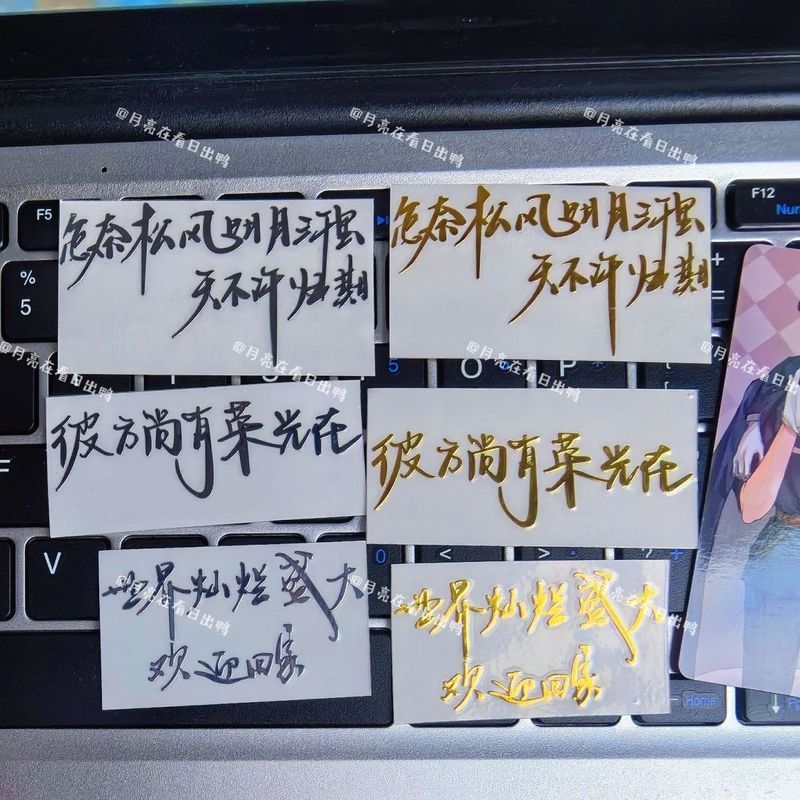 @月亮在看日出鸭
@月亮在看日出鸭
@月亮在看日出鸭
F5
F12
Num
%
5
怎奈松风明月三千里
天不许归期
怎奈松风明月三千里
天不许归期
@月亮在看日出鸭
@月亮在看日出鸭
@月亮在看日出鸭
5
O
P
彼方尚有荣光在
彼方尚有荣光在
V
0
<
>
?
世界灿烂盛大
欢迎回家
世界灿烂盛大
欢迎回家
@月亮在看日出鸭
@月亮在看日出鸭
@月亮在看日出鸭
Home